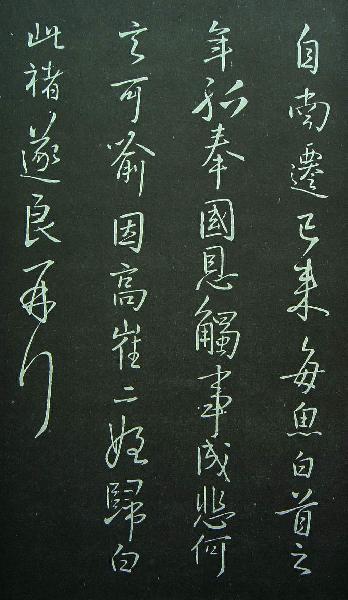 自南遷已来每魚白首之
年孤奉國恩觸事成悲何
言可喻因高崔二姪歸白
此褚遂良再行